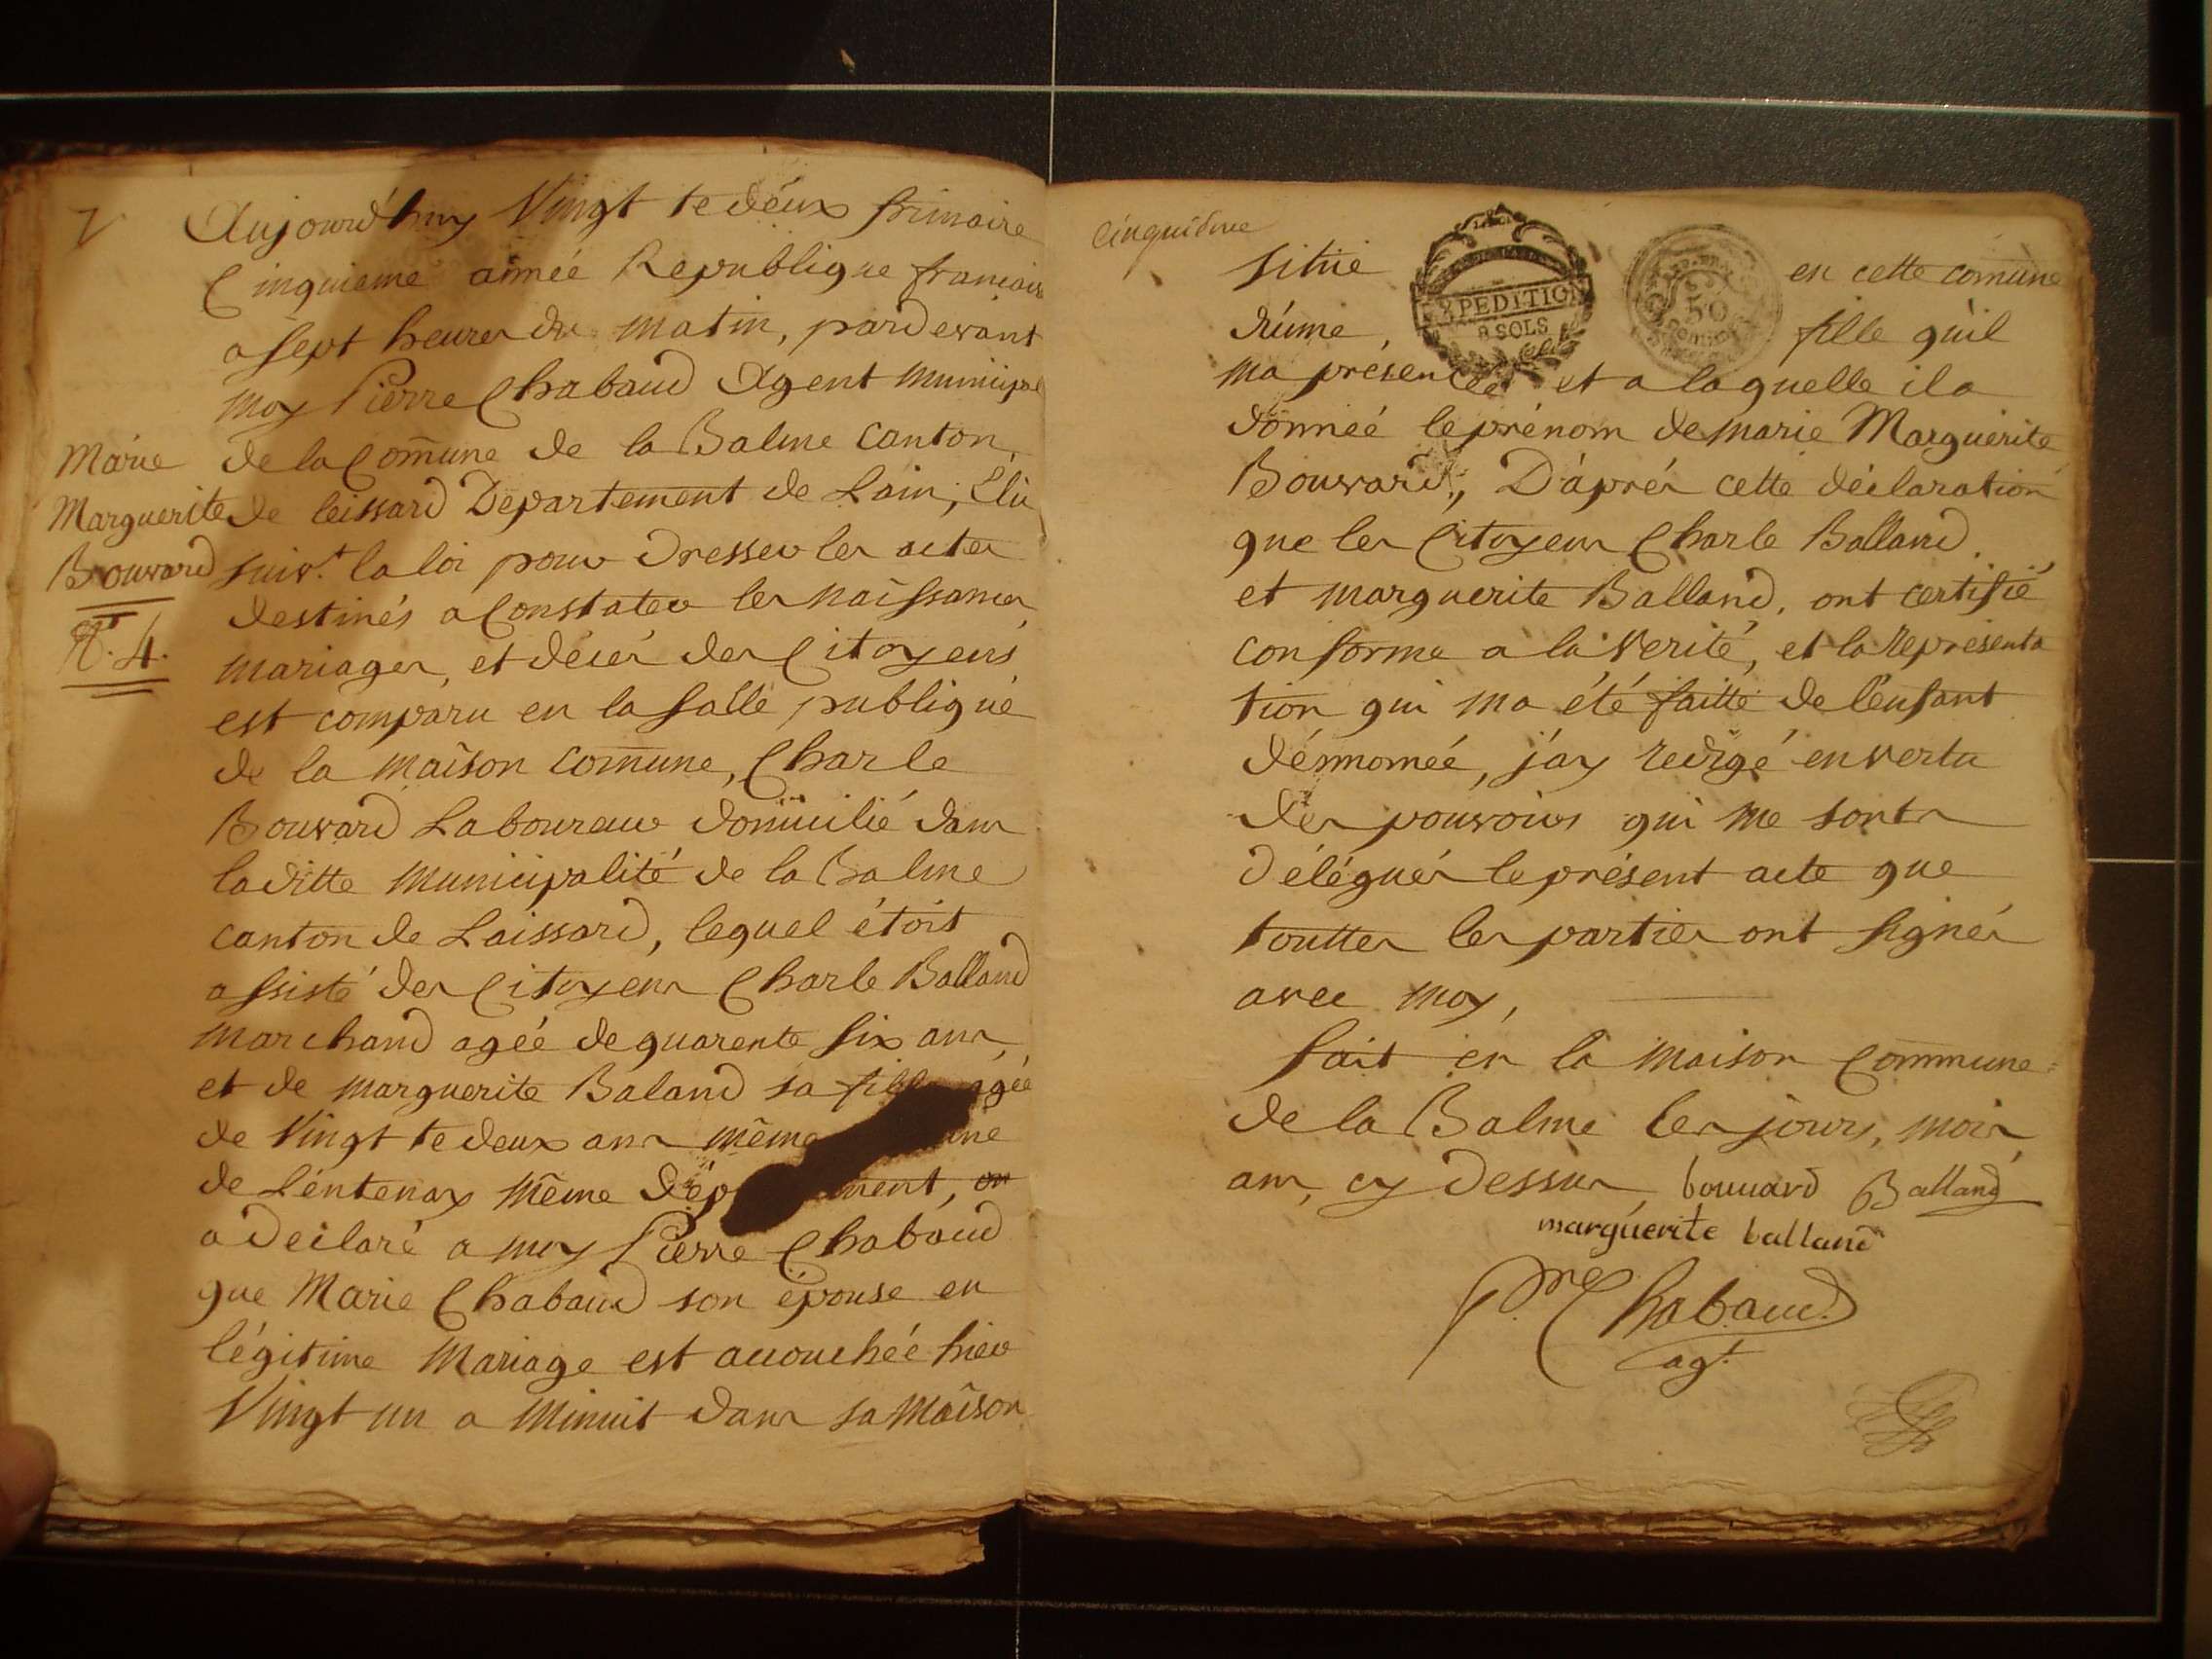 Aujourd'huy Vingt te deux frimaire
Cinquieme année Republique francaise
a sept heures du matin, pardevant
moy Pierre Chabaud Agent municipal
de la Com̄une de la Balme canton
de leissard Departement de Lain, Elu
suivt. la loi pour dresser les actes
destinés a Constater les naissances,
mariages, et décés des Citoyens
est comparu en la salle publique
de la maison com̄une, Charle
Bouvard Laboureur domicilié dans
laditte municipalité de la Balme
canton de Laissard, lequel étoit
assisté des Citoyens Charle Balland
marchand agée de quarente six ans,
et de marguerite Baland sa fille agée
de Vingt te deux ans même
de Léntenay même dép ment,
a déclaré a moy Pierre Chabaud
que Marie Chabaud son épouse en
légitime mariage est accouchée hier
Vingt un a minuit dans sa maison
Marie
Marguerite
Bouvard
N°. 4.
cinquième
située en cette com̄une
d'úme, fille qu'il
ma présenteé et a laquelle il a
donneé le prénom de marie Marguerite
Bouvard, D'aprés cette déclaration
que les Citoyens Charle Balland
et marguerite Balland, ont certifié
conforme a la vérité, et la représenta
tion qui ma été faitte de l'enfant
dénnomeé, j'ay redigé en vertu
des pouvoirs qui me sont
délégués le présent acte que
touttes les parties ont signés
avec moy,
fait en la maison Commune
de la Balme les jours, mois,
ans, cy dessus bouuard Balland
marguerite balland
Pre Chabaud
agt.
EXPEDITION
8 SOLS
50